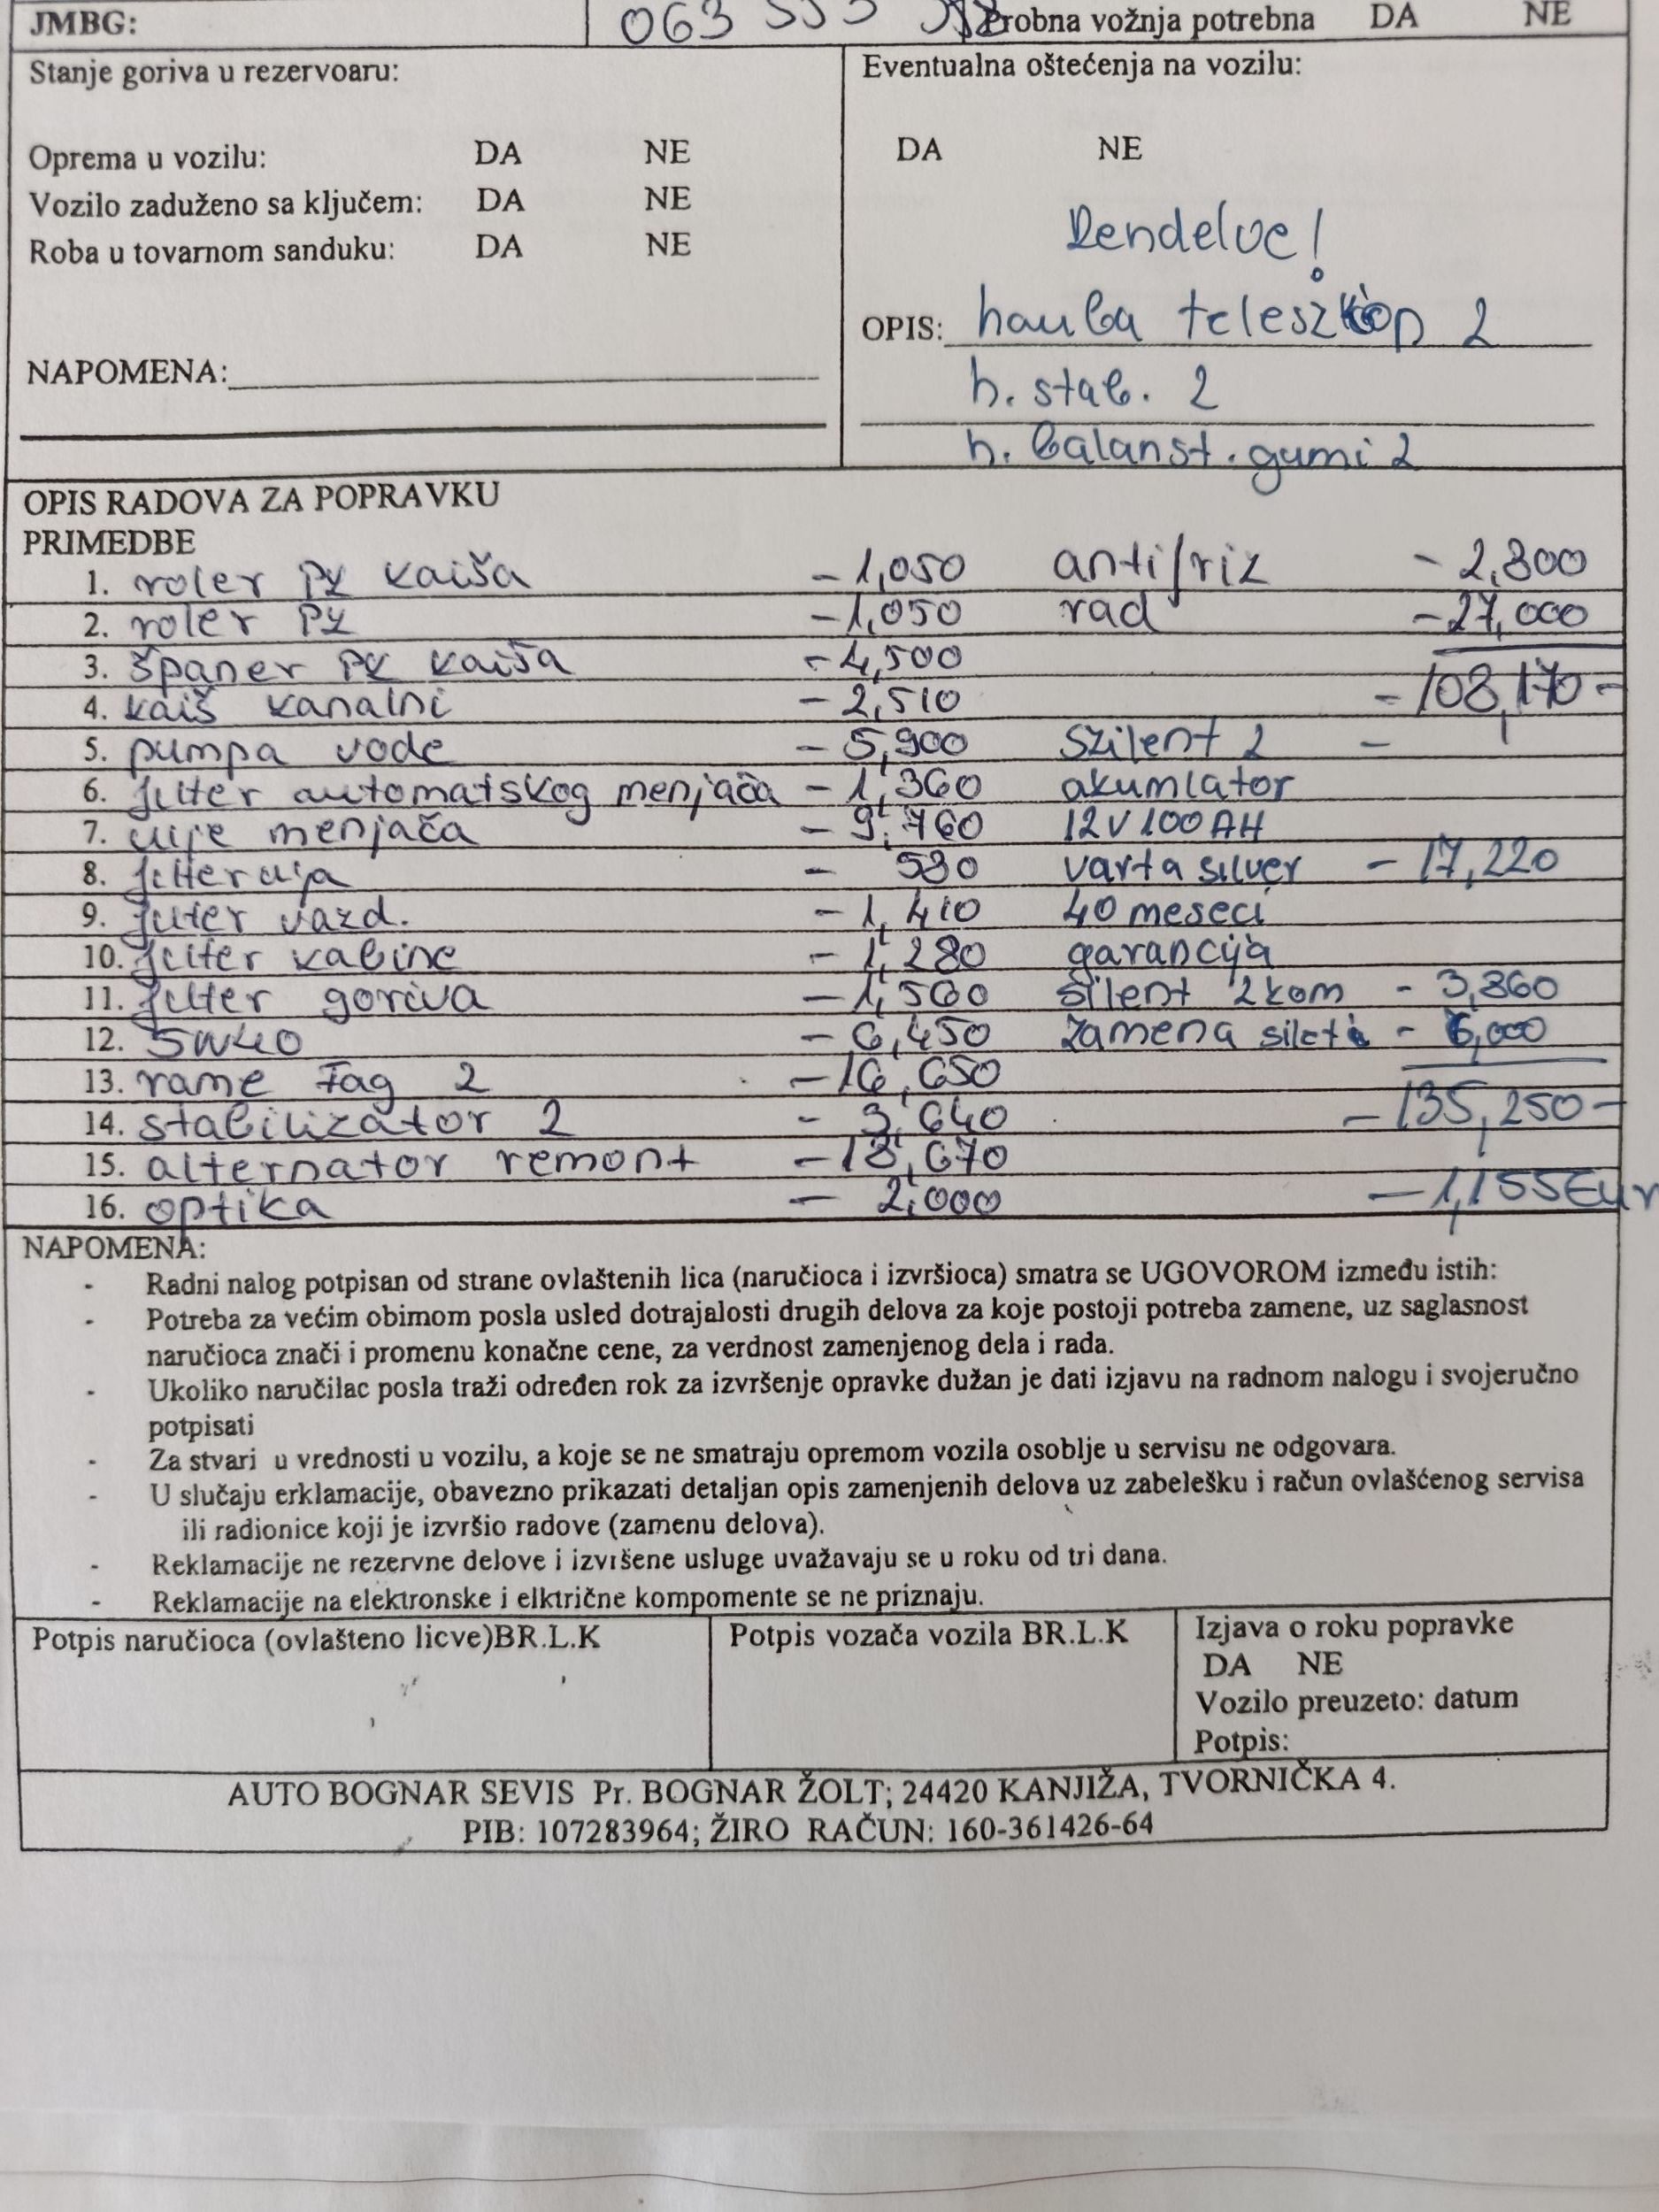 JMBG: 063 Probna vožnja potrebna DA NE
Stanje goriva u rezervoaru:
Oprema u vozilu: DA NE
Vozilo zaduženo sa ključem: DA NE
Roba u tovarnom sanduku: DA NE
NAPOMENA:
Eventualna oštećenja na vozilu:
DA NE
Rendelve!
OPIS: hauba teleszkóp 2
h. stab. 2
h. balanst. gumi 2
OPIS RADOVA ZA POPRAVKU
PRIMEDBE
1. roler PK kaiša - 1,050 antifriz - 2,800
2. roler PK - 1,050 rad - 27,000
3. španer PK kaiša - 4,500
4. kaiš kanalni - 2,510 - 108,170 -
5. pumpa vode - 5,900 szilent 2 -
6. filter automatskog menjača - 1,360 akumlator
7. ulje menjača - 9,760 12V 100AH
8. filter ulja - 580 varta silver - 17,220
9. filter vazd. - 1,410 40 meseci
10. filter kabine - 1,280 garancija
11. filter goriva - 1,560 silent 2 kom - 3,860
12. 5W40 - 6,450 zamena - 6,000
13. rame Fag 2 - 16,650
14. stabilizator 2 - 3,640 - 135,250 -
15. alternator remont - 18,670
16. optika - 2,000 - 1,155 Eur
NAPOMENA:
- Radni nalog potpisan od strane ovlaštenih lica (naručioca i izvršioca) smatra se UGOVOROM između istih:
- Potreba za većim obimom posla usled dotrajalosti drugih delova za koje postoji potreba zamene, uz saglasnost
naručioca znači i promenu konačne cene, za verdnost zamenjenog dela i rada.
- Ukoliko naručilac posla traži određen rok za izvršenje opravke dužan je dati izjavu na radnom nalogu i svojeručno
potpisati
- Za stvari u vrednosti u vozilu, a koje se ne smatraju opremom vozila osoblje u servisu ne odgovara.
- U slučaju erklamacije, obavezno prikazati detaljan opis zamenjenih delova uz zabelešku i račun ovlašćenog servisa
ili radionice koji je izvršio radove (zamenu delova).
- Reklamacije ne rezervne delove i izvršene usluge uvažavaju se u roku od tri dana.
- Reklamacije na elektronske i elktrične kompomente se ne priznaju.
Potpis naručioca (ovlašteno licve)BR.L.K
Potpis vozača vozila BR.L.K
Izjava o roku popravke
DA NE
Vozilo preuzeto: datum
Potpis:
AUTO BOGNAR SEVIS Pr. BOGNAR ŽOLT; 24420 KANJIŽA, TVORNIČKA 4.
PIB: 107283964; ŽIRO RAČUN: 160-361426-64